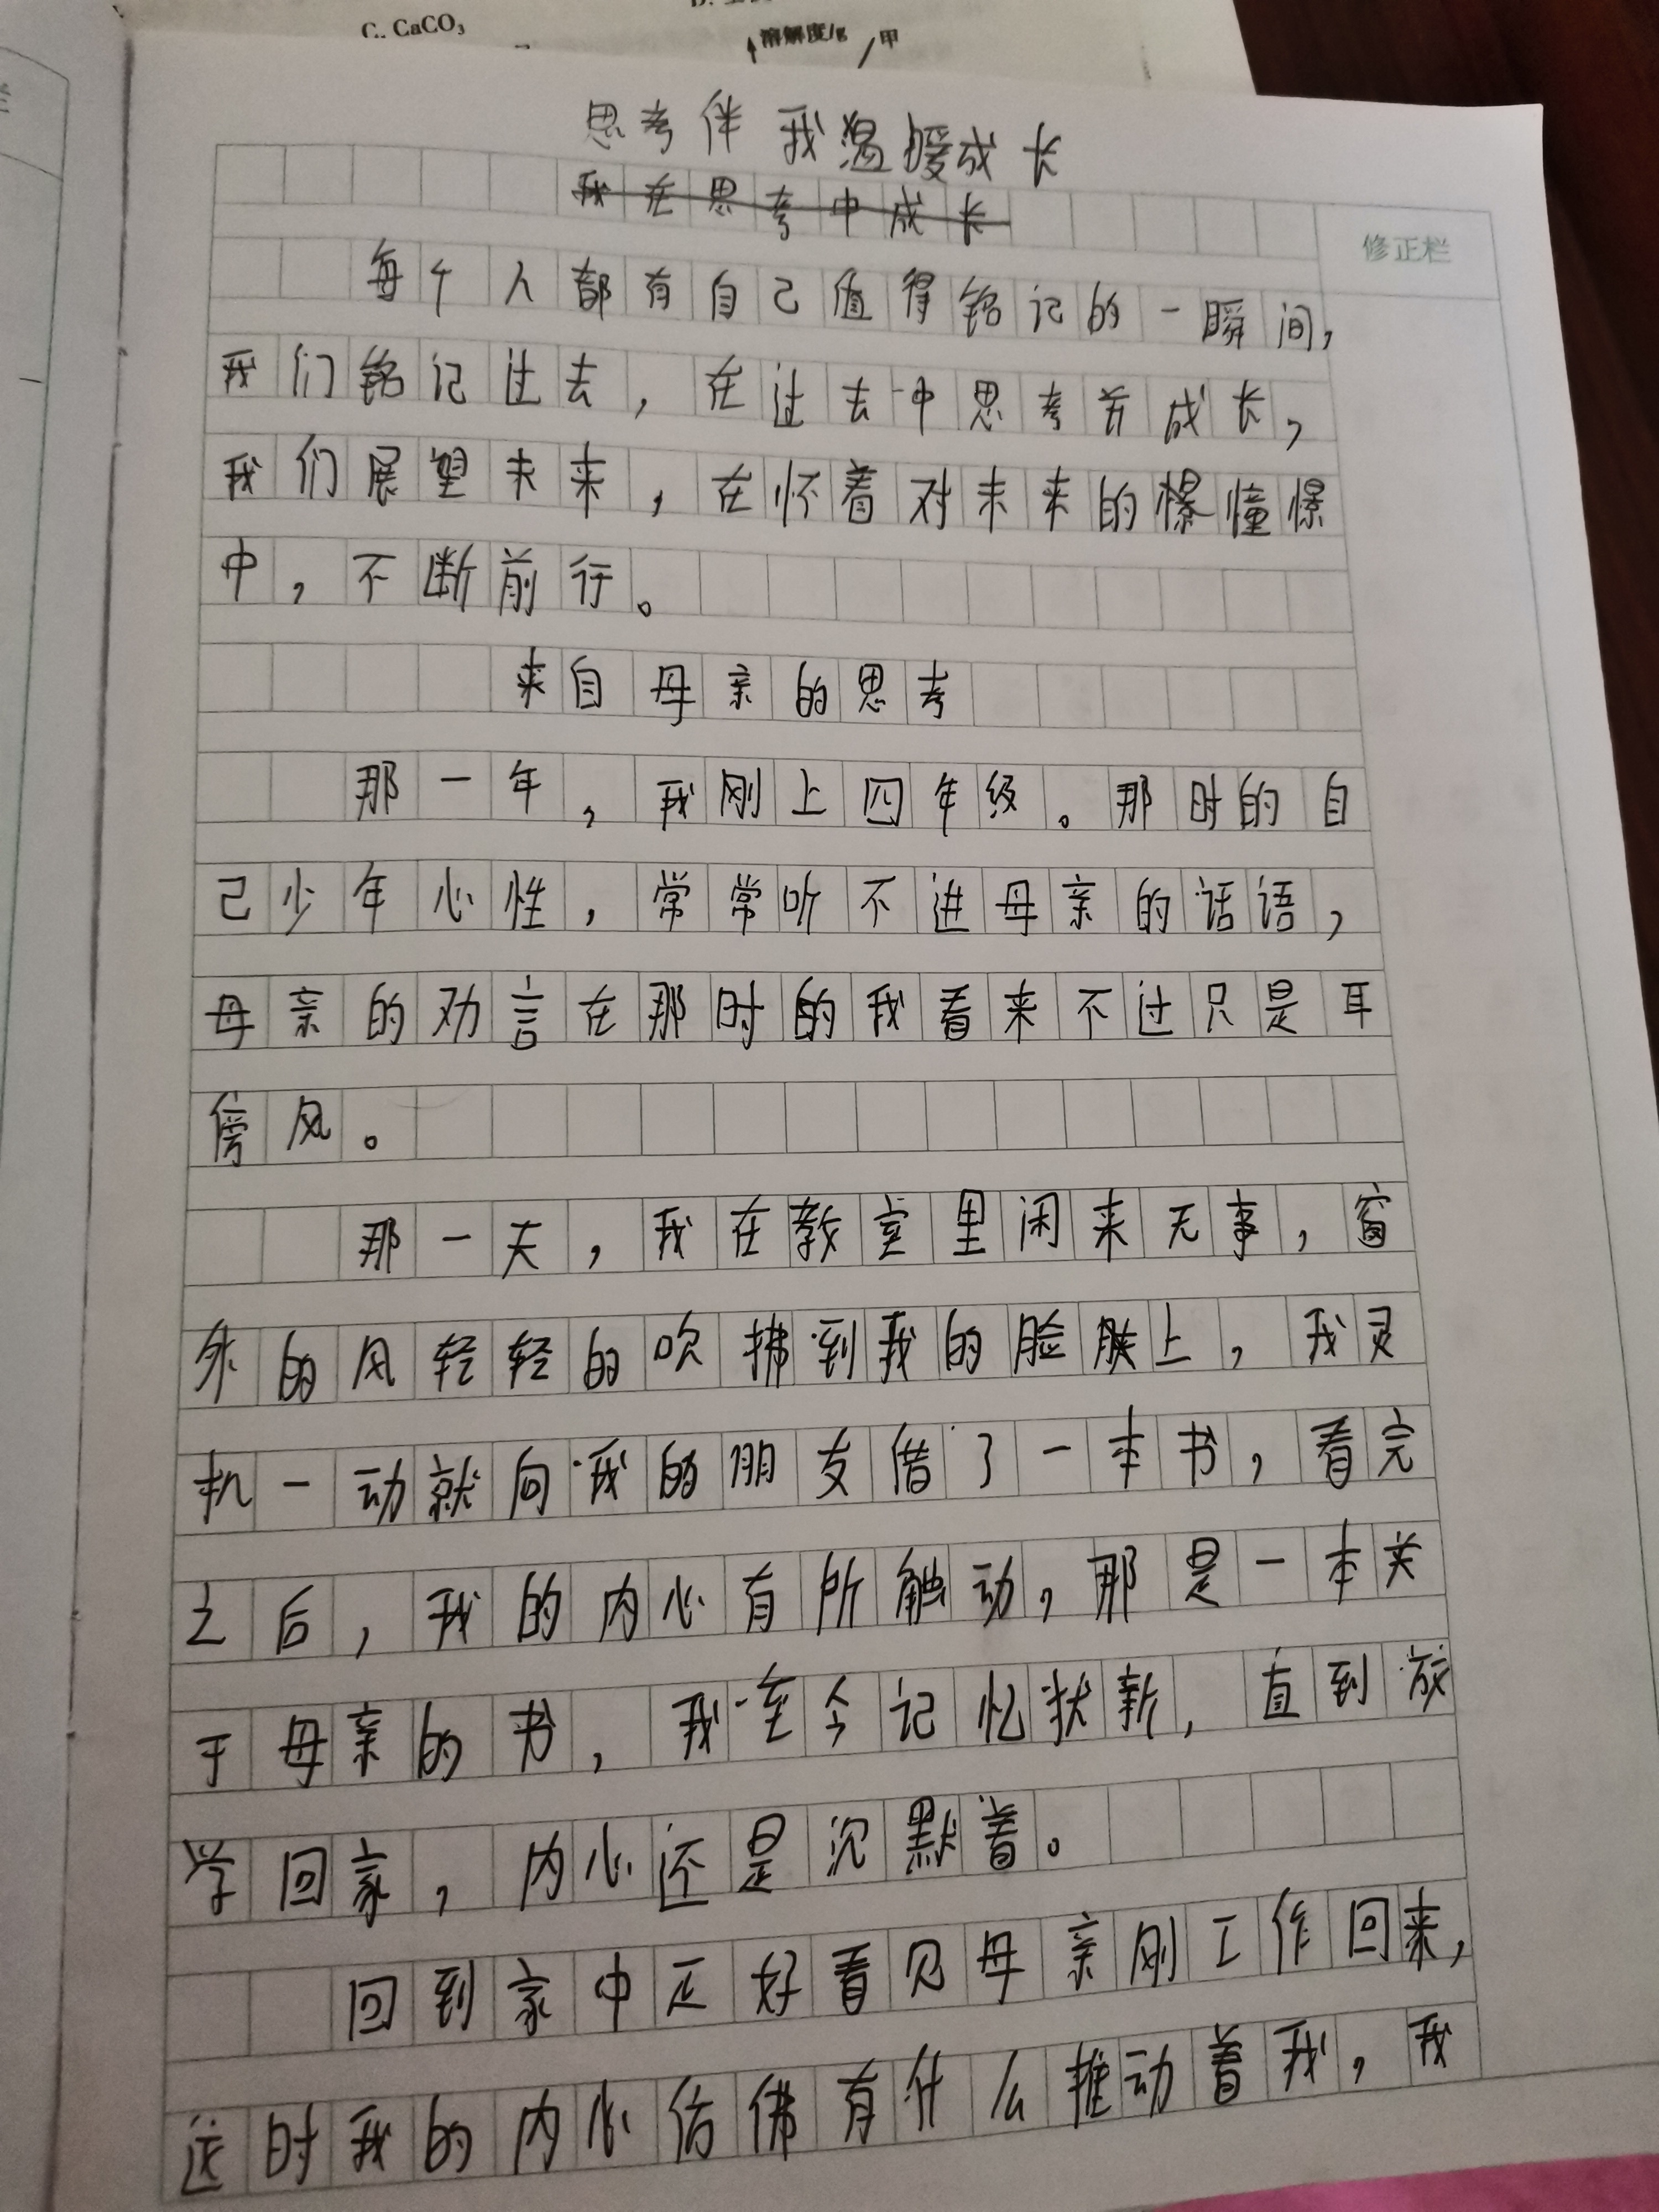 C. CaCO₃
溶解度/g 甲
思考伴我温暖成长
我在思考中成长
修正栏
每个人都有自己值得铭记的一瞬间，
我们铭记过去，在过去中思考并成长，
我们展望未来，在怀着对未来的憧憬
中，不断前行。
来自母亲的思考
那一年，我刚上四年级。那时的自
己少年心性，常常听不进母亲的话语，
母亲的劝言在那时的我看来不过只是耳
傍风。
那一天，我在教室里闲来无事，窗
外的风轻轻的吹拂到我的脸肤上，我灵
机一动就向我的朋友借了一本书，看完
之后，我的内心有所触动，那是一本关
于母亲的书，我至今记忆犹新，直到放
学回家，内心还是沉默着。
回到家中正好看见母亲刚工作回来，
这时我的内心仿佛有什么推动着我，我